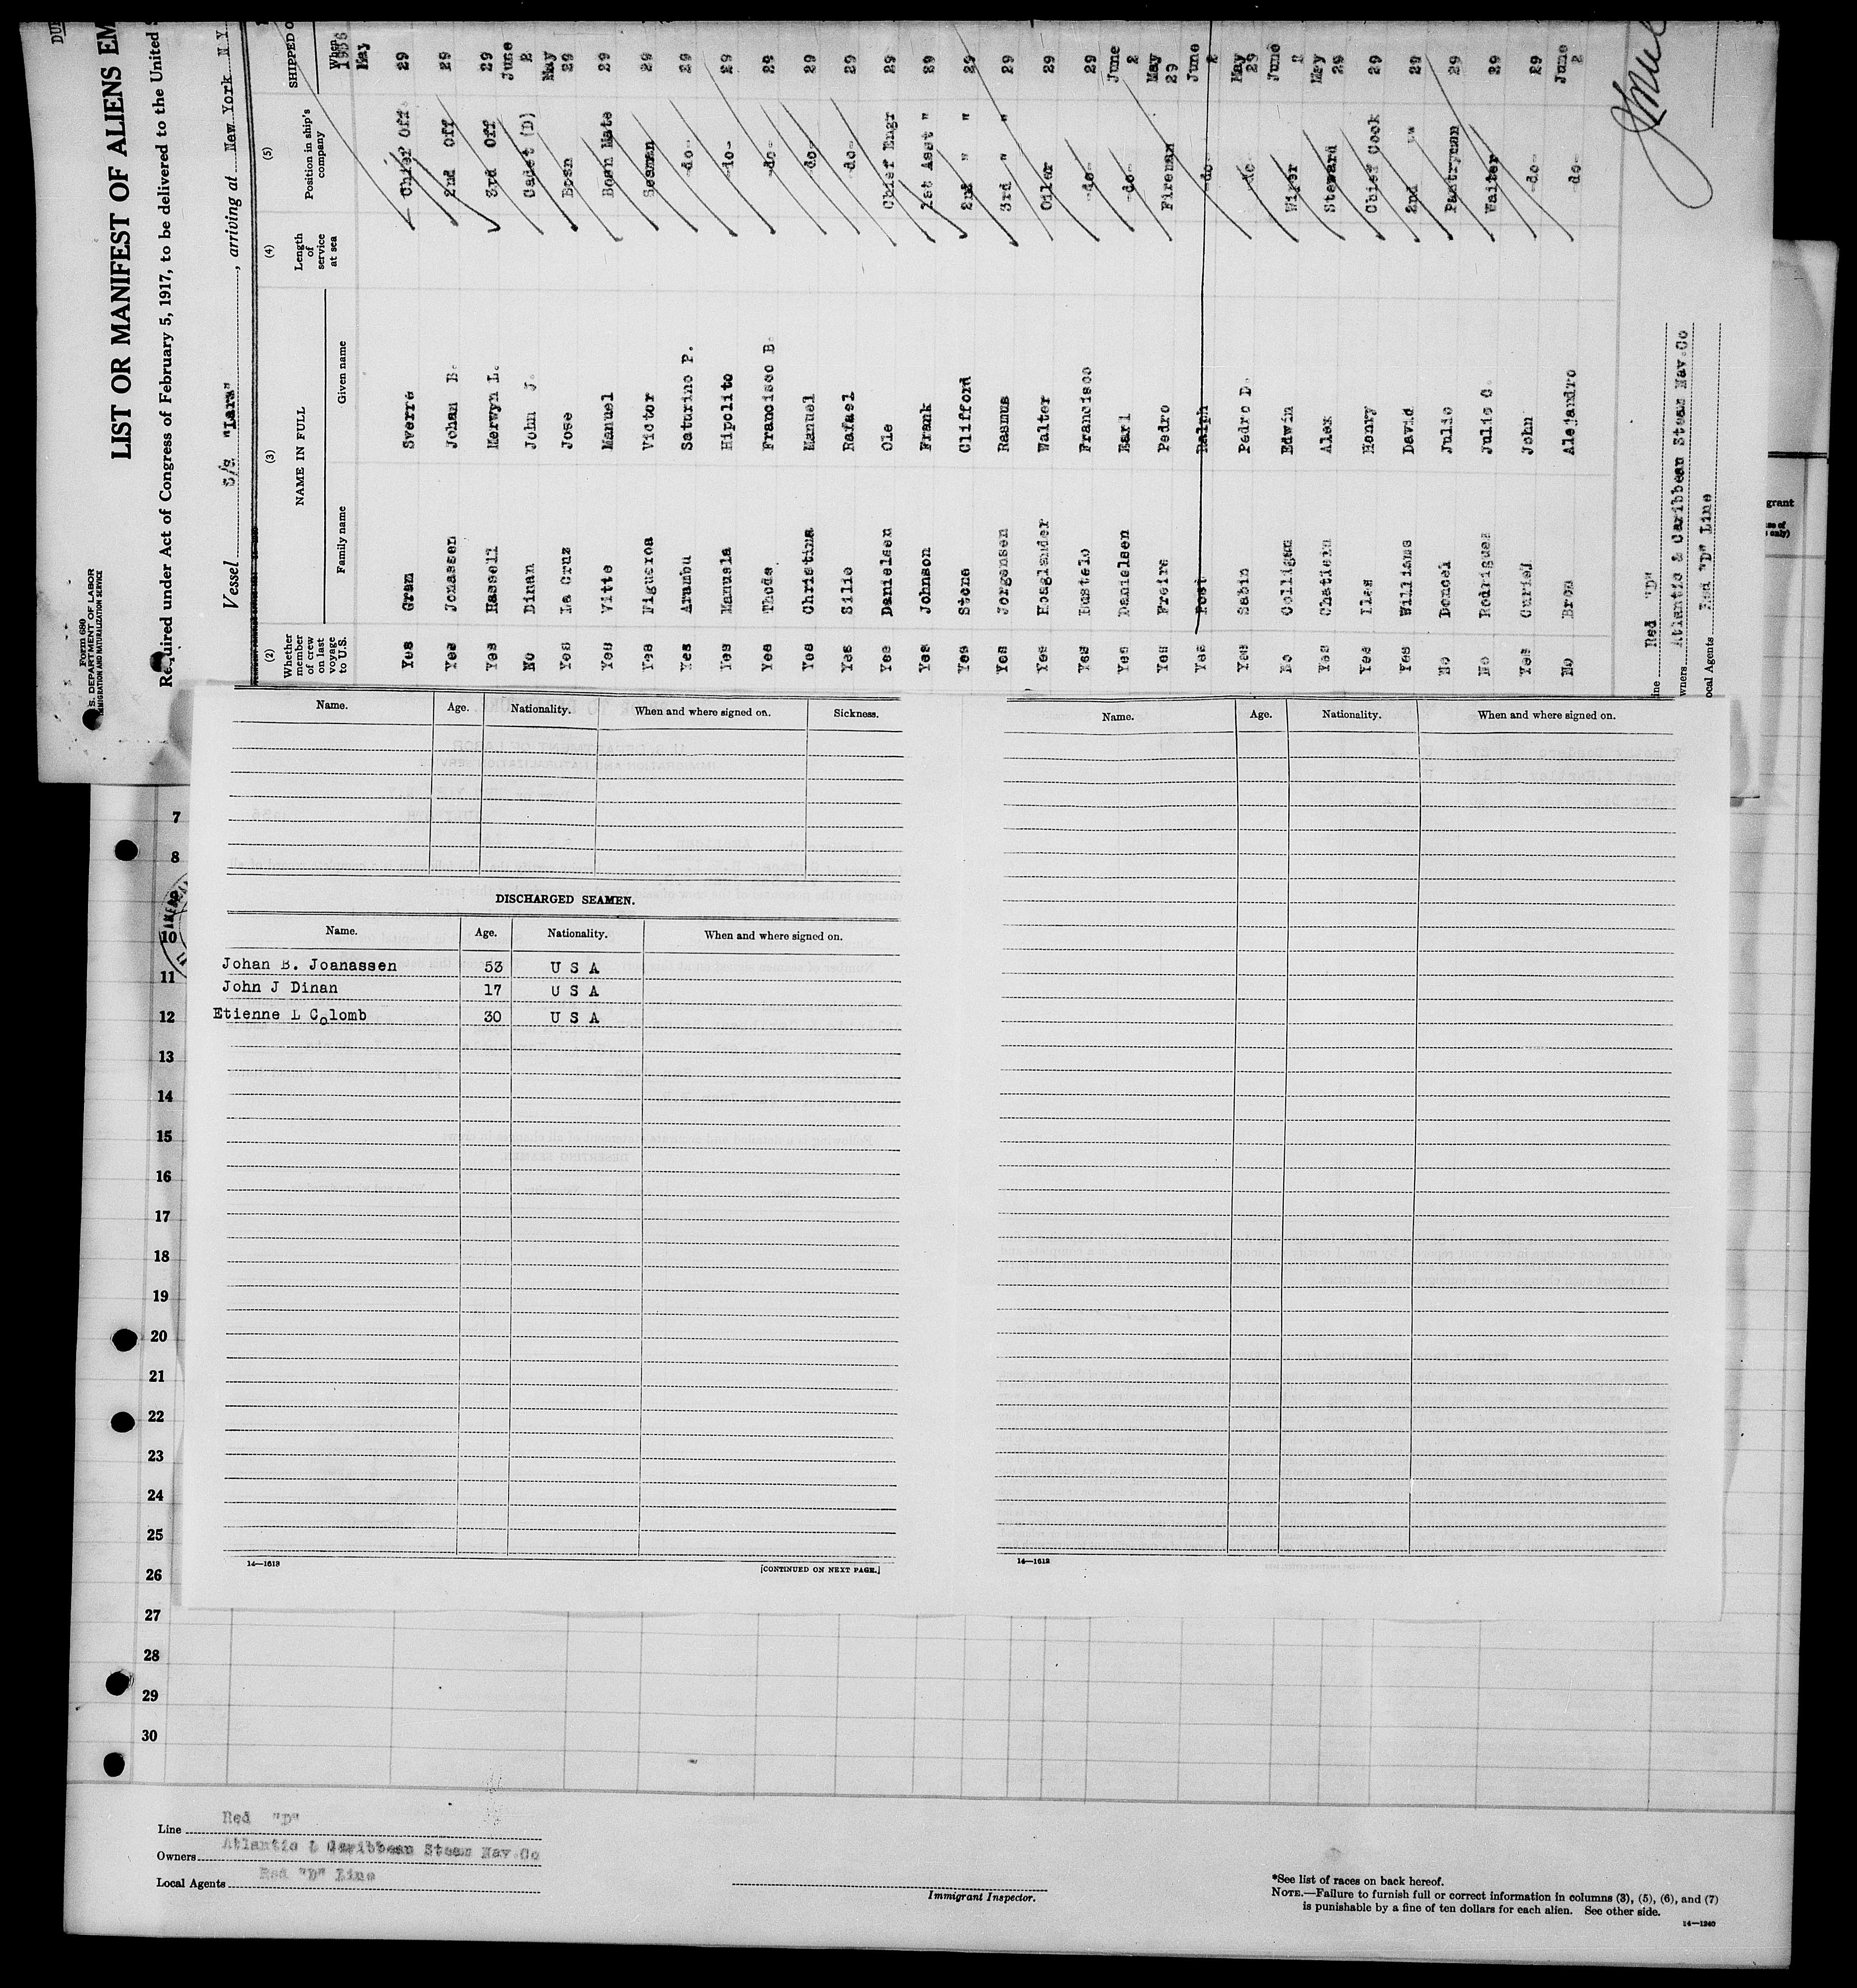 Form 680
U. S. DEPARTMENT OF LABOR
IMMIGRATION AND NATURALIZATION SERVICE
LIST OR MANIFEST OF ALIENS EM
Required under Act of Congress of February 5, 1917, to be delivered to the United S
Vessel S/S "Lara", arriving at New York N.Y.
(2) (3) (4) (5)
Whether member of crew on last voyage to U.S. NAME IN FULL Family name Given name Length of service at sea Position in ship's company SHIPPED O When
1936
Yes Gram Sverre Chief Off. May 29
Yes Jonassen Johan B. 2nd Off 29
Yes Hassell Merwyn L. 3rd Off 29
No Dinan John J. Cadet (D) June 2
Yes La Cruz Jose Bosn May 29
Yes Vitte Manuel Bosn Mate 29
Yes Figueroa Victor Seaman 29
Yes Arambu Saturino P. -do- 29
Yes Manuela Hipolito -do- 29
Yes Thode Francisco B. -do- 29
Yes Christina Manuel -do- 29
Yes Silie Rafael -do- 29
Yes Danielsen Ole Chief Engr 29
Yes Johnson Frank 1st Asst " 29
Yes Stone Clifford 2nd " " 29
Yes Jorgensen Rasmus 3rd " " 29
Yes Hoaglander Walter Oiler 29
Yes Bustelo Francisco -do- 29
Yes Danielsen Karl -do- June 2
Yes Freire Pedro Fireman May 29
Yes Post Ralph -do- June 2
Yes Sabin Pedro D. -do- May 29
No Colligan Edwin Wiper June 2
Yes Chatlein Alex Steward May 29
Yes Lles Henry Chief Cook 29
Yes Williams David 2nd " 29
No Doncel Julio Pantryman 29
No Rodriguez Julio C. Waiter 29
Yes Curiel John -do- 29
No Bron Alejandro -do- June 2
Red "D"
Atlantic & Caribbean Steam Nav.Co
ocal Agents Red "D" Line
grant
Name. Age. Nationality. When and where signed on. Sickness.
DISCHARGED SEAMEN.
Name. Age. Nationality. When and where signed on.
Johan B. Joanassen 53 U S A
John J Dinan 17 U S A
Etienne L Colomb 30 U S A
14—1613
[CONTINUED ON NEXT PAGE.]
Name. Age. Nationality. When and where signed on.
14—1613
7
8
10
11
12
13
14
15
16
17
18
19
20
21
22
23
24
25
26
27
28
29
30
Line Red "D"
Owners Atlantic & Caribbean Steam Nav.Co
Local Agents Red "D" Line
Immigrant Inspector.
*See list of races on back hereof.
NOTE.—Failure to furnish full or correct information in columns (3), (5), (6), and (7)
is punishable by a fine of ten dollars for each alien. See other side.
14—1240